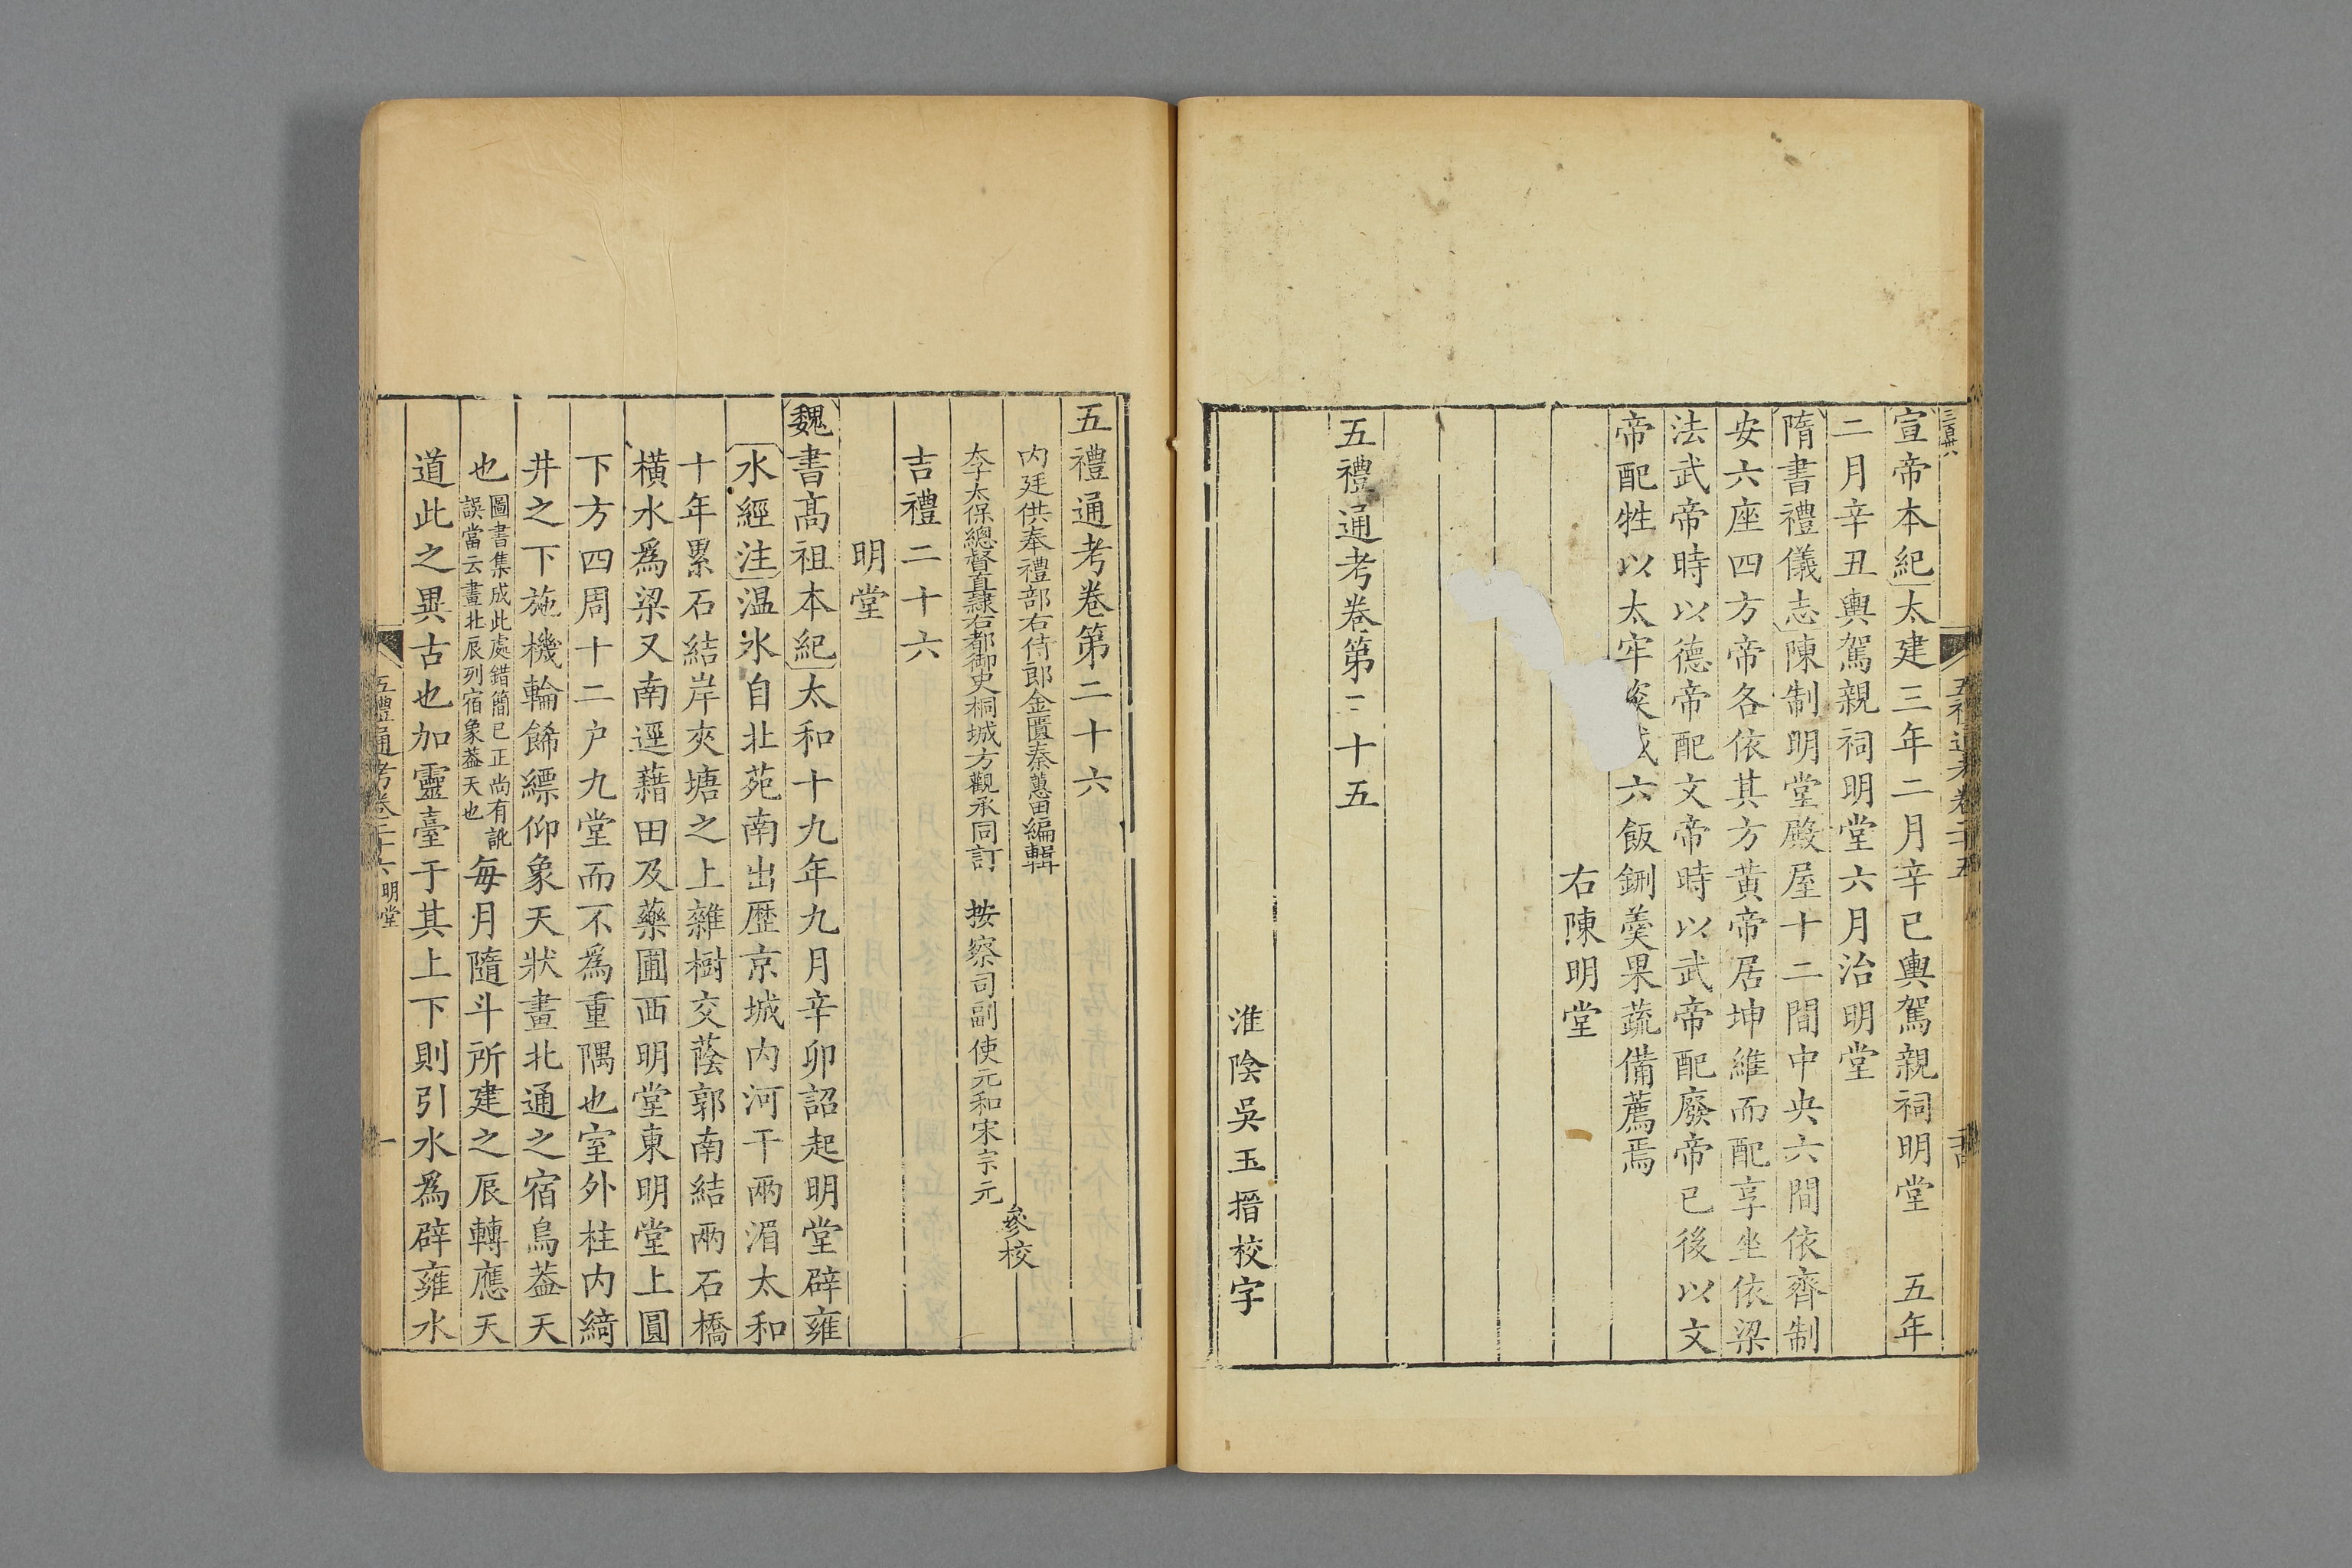 宣帝本紀太建三年二月辛巳輿駕親祠明堂　五年
二月辛丑輿駕親祠明堂六月治明堂
隋書禮儀志陳制明堂殿屋十二間中央六間依齊制
安六座四方帝各依其方黃帝居坤維而配享坐依梁
法武帝時以德帝配文帝時以武帝配廢帝已後以文
帝配牲以太牢六飯鉶羹果蔬備薦焉
右陳明堂
五禮通考卷第二十五
淮陰吳玉搢校字
五禮通考卷第二十六
內廷供奉禮部右侍郎金匱秦蕙田編輯
太子太保總督直隸右都御史桐城方觀承同訂　按察司副使元和宋宗元
參校
吉禮二十六
明堂
魏書髙祖本紀太和十九年九月辛卯詔起明堂辟雍
水經注溫水自北苑南出歷京城內河干兩湄太和
十年累石結岸夾塘之上雜樹交蔭郭南結兩石橋
橫水爲梁又南逕藉田及藥圃西明堂東明堂上圓
下方四周十二户九堂而不爲重隅也室外柱內綺
井之下施機輪飾縹仰象天狀畫北通之宿鳥葢天
也圖書集成此處錯簡已正尚有訛
誤當云畫北辰列宿象葢天也
每月隨斗所建之辰轉應天
道此之異古也加靈臺于其上下則引水爲辟雍水
五禮通考卷二十六 明堂
一